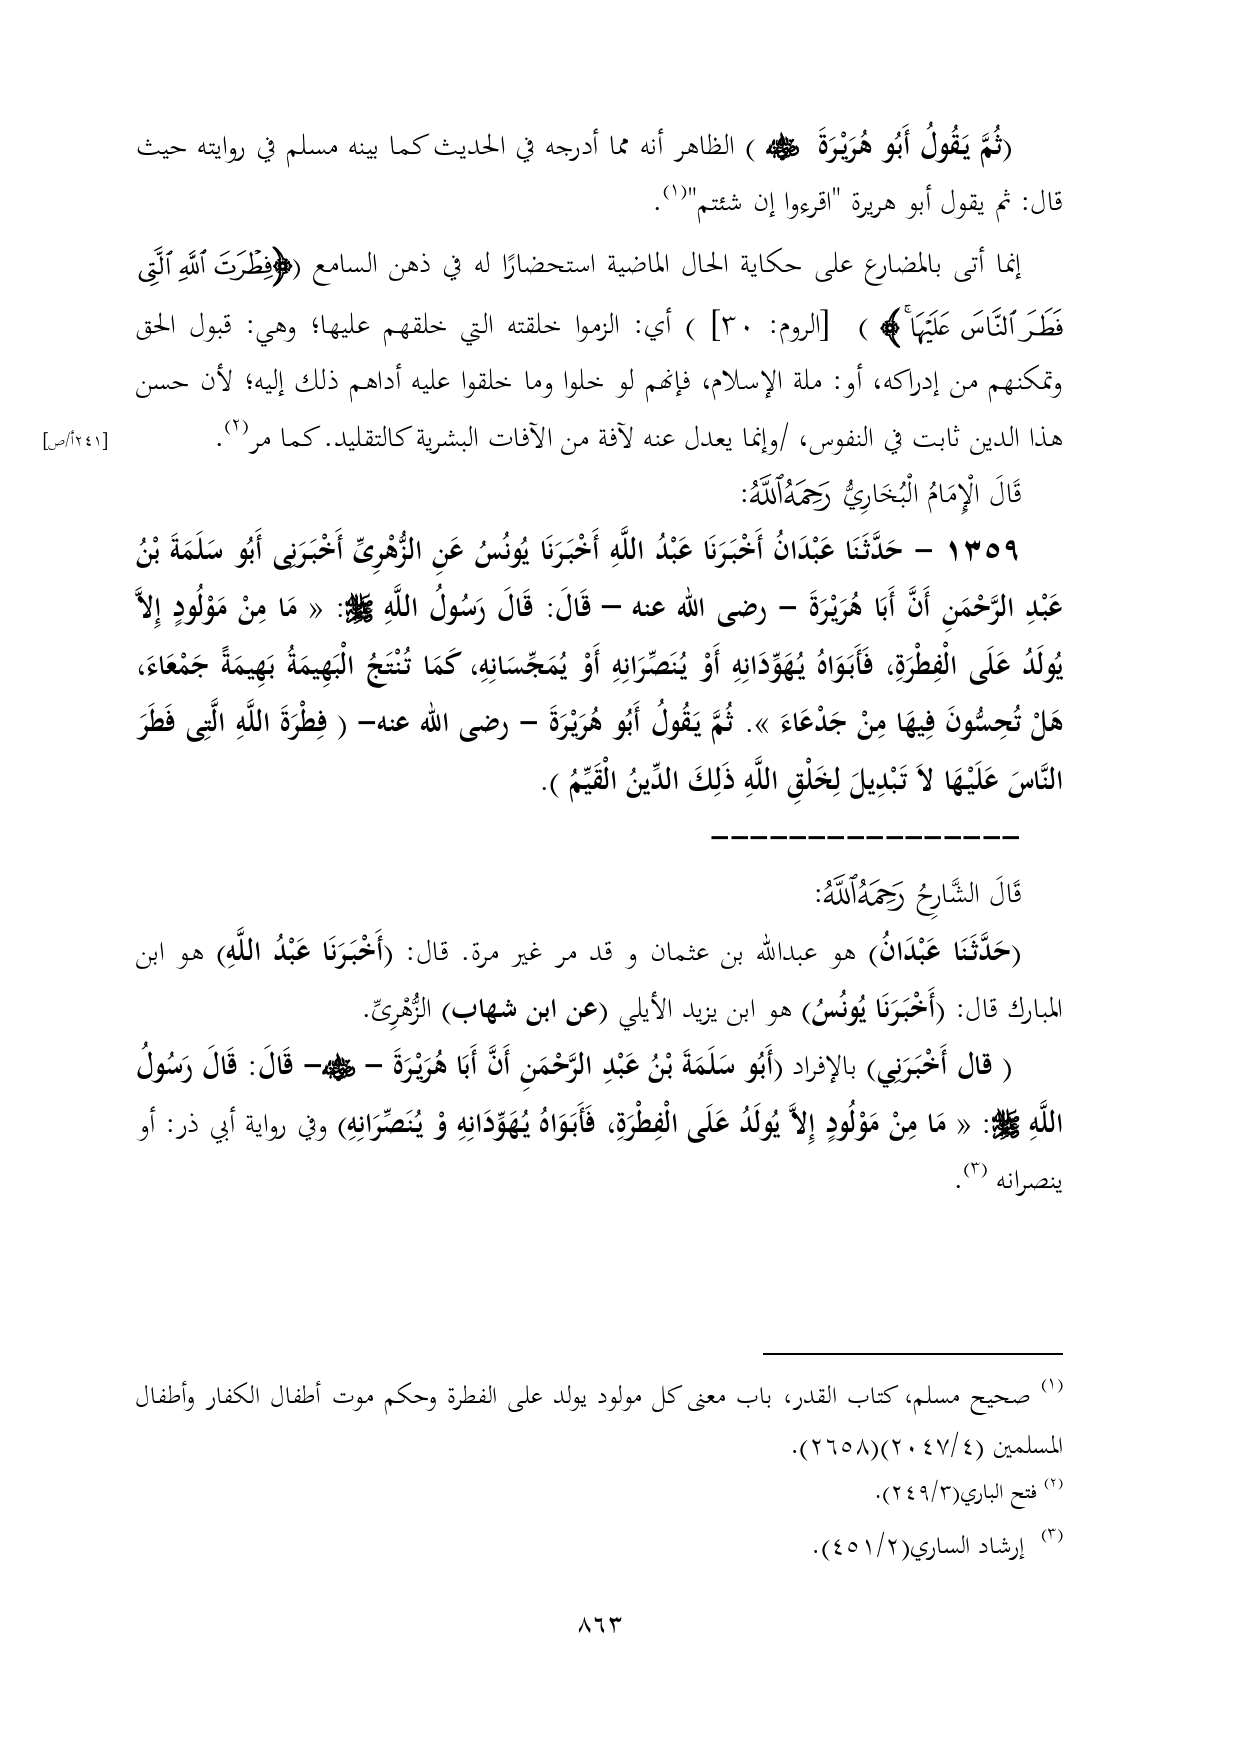 (ثُمَّ يَقُولُ أَبُو هُرَيْرَةَ ﵁ ) الظاهر أنه مما أدرجه في الحديث كما بينه مسلم في روايته حيث
قال: ثم يقول أبو هريرة "اقرءوا إن شئتم"(١).
إنما أتى بالمضارع على حكاية الحال الماضية استحضارًا له في ذهن السامع (﴿فِطْرَتَ ٱللَّهِ ٱلَّتِي
فَطَرَ ٱلنَّاسَ عَلَيْهَا ۚ﴾ ) [الروم: ٣٠] ) أي: الزموا خلقته التي خلقهم عليها؛ وهي: قبول الحق
وتمكنهم من إدراكه، أو: ملة الإسلام، فإنهم لو خلوا وما خلقوا عليه أداهم ذلك إليه؛ لأن حسن
هذا الدين ثابت في النفوس، /وإنما يعدل عنه لآفة من الآفات البشرية كالتقليد. كما مر(٢).
[٢٤١أ/ص]
قَالَ الْإِمَامُ الْبُخَارِيُّ رَحِمَهُ ٱللَّهُ:
١٣٥٩ – حَدَّثَنَا عَبْدَانُ أَخْبَرَنَا عَبْدُ اللَّهِ أَخْبَرَنَا يُونُسُ عَنِ الزُّهْرِىِّ أَخْبَرَنِى أَبُو سَلَمَةَ بْنُ
عَبْدِ الرَّحْمَنِ أَنَّ أَبَا هُرَيْرَةَ – رضى الله عنه – قَالَ: قَالَ رَسُولُ اللَّهِ ﷺ: « مَا مِنْ مَوْلُودٍ إِلاَّ
يُولَدُ عَلَى الْفِطْرَةِ، فَأَبَوَاهُ يُهَوِّدَانِهِ أَوْ يُنَصِّرَانِهِ أَوْ يُمَجِّسَانِهِ، كَمَا تُنْتَجُ الْبَهِيمَةُ بَهِيمَةً جَمْعَاءَ،
هَلْ تُحِسُّونَ فِيهَا مِنْ جَدْعَاءَ ». ثُمَّ يَقُولُ أَبُو هُرَيْرَةَ – رضى الله عنه– ( فِطْرَةَ اللَّهِ الَّتِى فَطَرَ
النَّاسَ عَلَيْهَا لاَ تَبْدِيلَ لِخَلْقِ اللَّهِ ذَلِكَ الدِّينُ الْقَيِّمُ ).
––––––––––––––––
قَالَ الشَّارِحُ رَحِمَهُ ٱللَّهُ:
(حَدَّثَنَا عَبْدَانُ) هو عبدالله بن عثمان و قد مر غير مرة. قال: (أَخْبَرَنَا عَبْدُ اللَّهِ) هو ابن
المبارك قال: (أَخْبَرَنَا يُونُسُ) هو ابن يزيد الأيلي (عن ابن شهاب) الزُّهْرِىِّ.
( قال أَخْبَرَنِي) بالإفراد (أَبُو سَلَمَةَ بْنُ عَبْدِ الرَّحْمَنِ أَنَّ أَبَا هُرَيْرَةَ – ﵁– قَالَ: قَالَ رَسُولُ
اللَّهِ ﷺ: « مَا مِنْ مَوْلُودٍ إِلاَّ يُولَدُ عَلَى الْفِطْرَةِ، فَأَبَوَاهُ يُهَوِّدَانِهِ وْ يُنَصِّرَانِهِ) وفي رواية أبي ذر: أو
ينصرانه (٣).
(١) صحيح مسلم، كتاب القدر، باب معنى كل مولود يولد على الفطرة وحكم موت أطفال الكفار وأطفال
المسلمين (٢٠٤٧/٤)(٢٦٥٨).
(٢) فتح الباري(٢٤٩/٣).
(٣) إرشاد الساري(٤٥١/٢).
٨٦٣